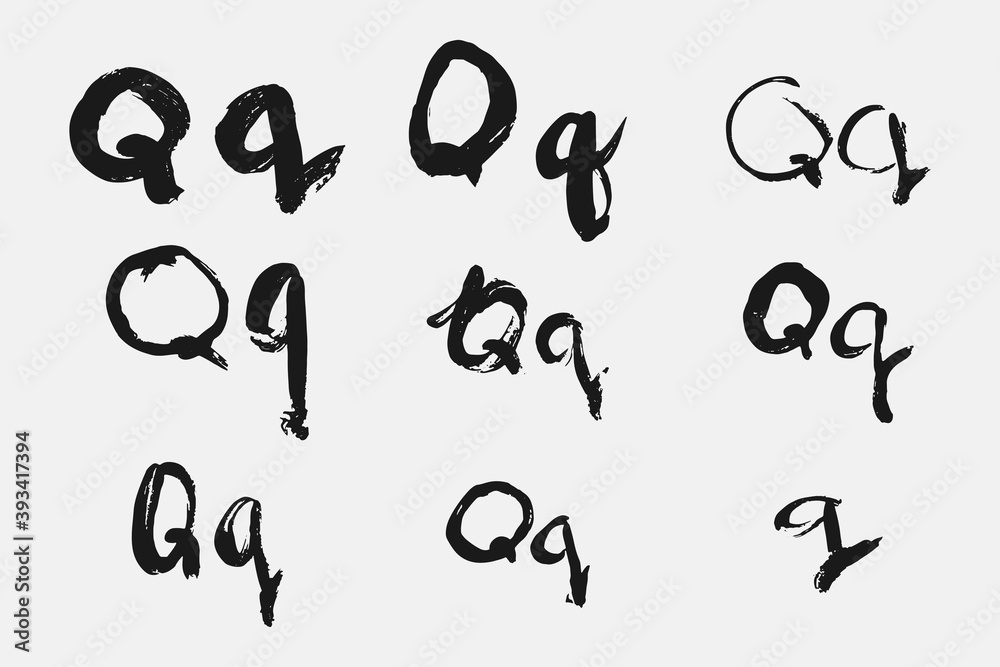 Qq Qq Qq
Qq Qq Qq
Qq Qq q
Adobe Stock | #393417394